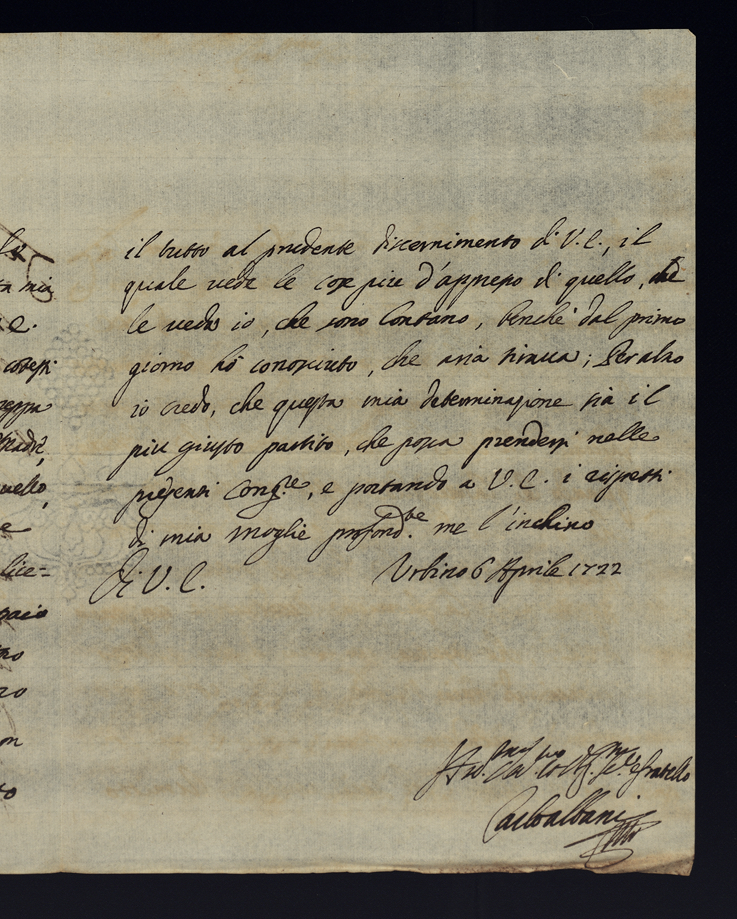 il tutto al prudente discernimento di V. E., il
quale vede le cose più d'appresso di quello, che
le vedo io, che sono lontano, benche dal primo
giorno hò conosciuto, che aria tirava; Per altro
io credo, che questa mia determinazione sia il
più giusto partito, che possa prendersi nelle
presenti cong.re, e portando a V. E. i rispetti
di mia moglie profond.te me l'inchino
Di V. E. Urbino 6 Aprile 1722
e fratello
Carlo Albani